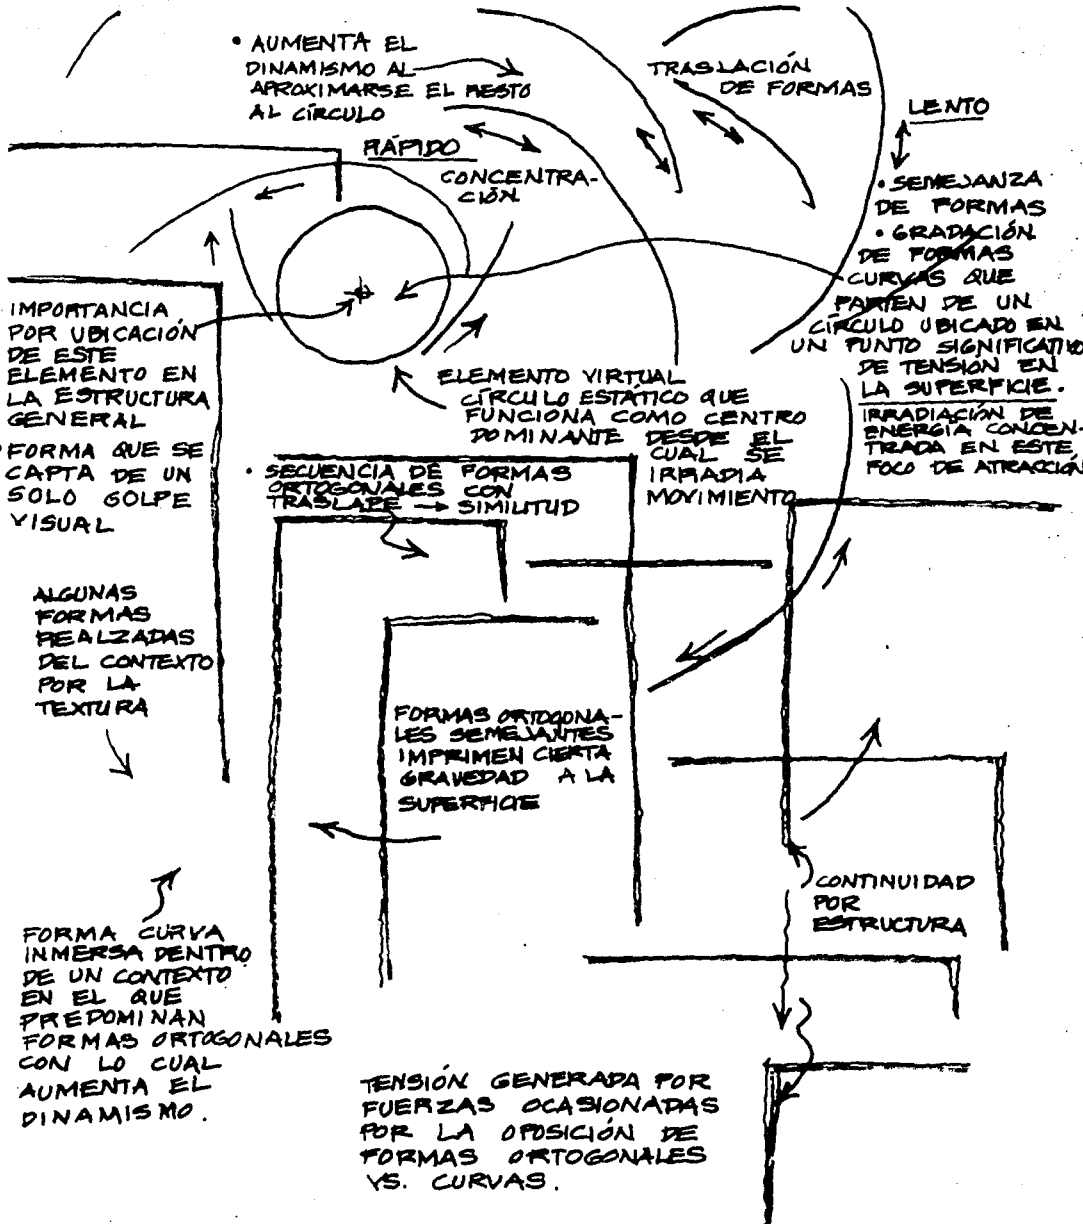 • AUMENTA EL
DINAMISMO AL
APROXIMARSE EL RESTO
AL CÍRCULO
TRASLACIÓN
DE FORMAS
LENTO
RÁPIDO
CONCENTRA-
CIÓN
• SEMEJANZA
DE FORMAS
• GRADACIÓN
DE FORMAS
CURVAS QUE
PARTEN DE UN
CÍRCULO UBICADO EN
UN PUNTO SIGNIFICATIVO
DE TENSIÓN EN
LA SUPERFICIE.
IRRADIACIÓN DE
ENERGÍA CONCEN-
TRADA EN ESTE
FOCO DE ATRACCIÓN
IMPORTANCIA
POR UBICACIÓN
DE ESTE
ELEMENTO EN
LA ESTRUCTURA
GENERAL
FORMA QUE SE
CAPTA DE UN
SOLO GOLPE
VISUAL
ELEMENTO VIRTUAL
CÍRCULO ESTÁTICO QUE
FUNCIONA COMO CENTRO
DOMINANTE DESDE EL
CUAL SE
IRRADIA
MOVIMIENTO
• SECUENCIA DE FORMAS
ORTOGONALES CON
TRASLAPE → SIMILITUD
ALGUNAS
FORMAS
REALZADAS
DEL CONTEXTO
POR LA
TEXTURA
FORMAS ORTOGONA-
LES SEMEJANTES
IMPRIMEN CIERTA
GRAVEDAD A LA
SUPERFICIE
CONTINUIDAD
POR
ESTRUCTURA
FORMA CURVA
INMERSA DENTRO
DE UN CONTEXTO
EN EL QUE
PREDOMINAN
FORMAS ORTOGONALES
CON LO CUAL
AUMENTA EL
DINAMISMO.
TENSIÓN GENERADA POR
FUERZAS OCASIONADAS
POR LA OPOSICIÓN DE
FORMAS ORTOGONALES
VS. CURVAS.